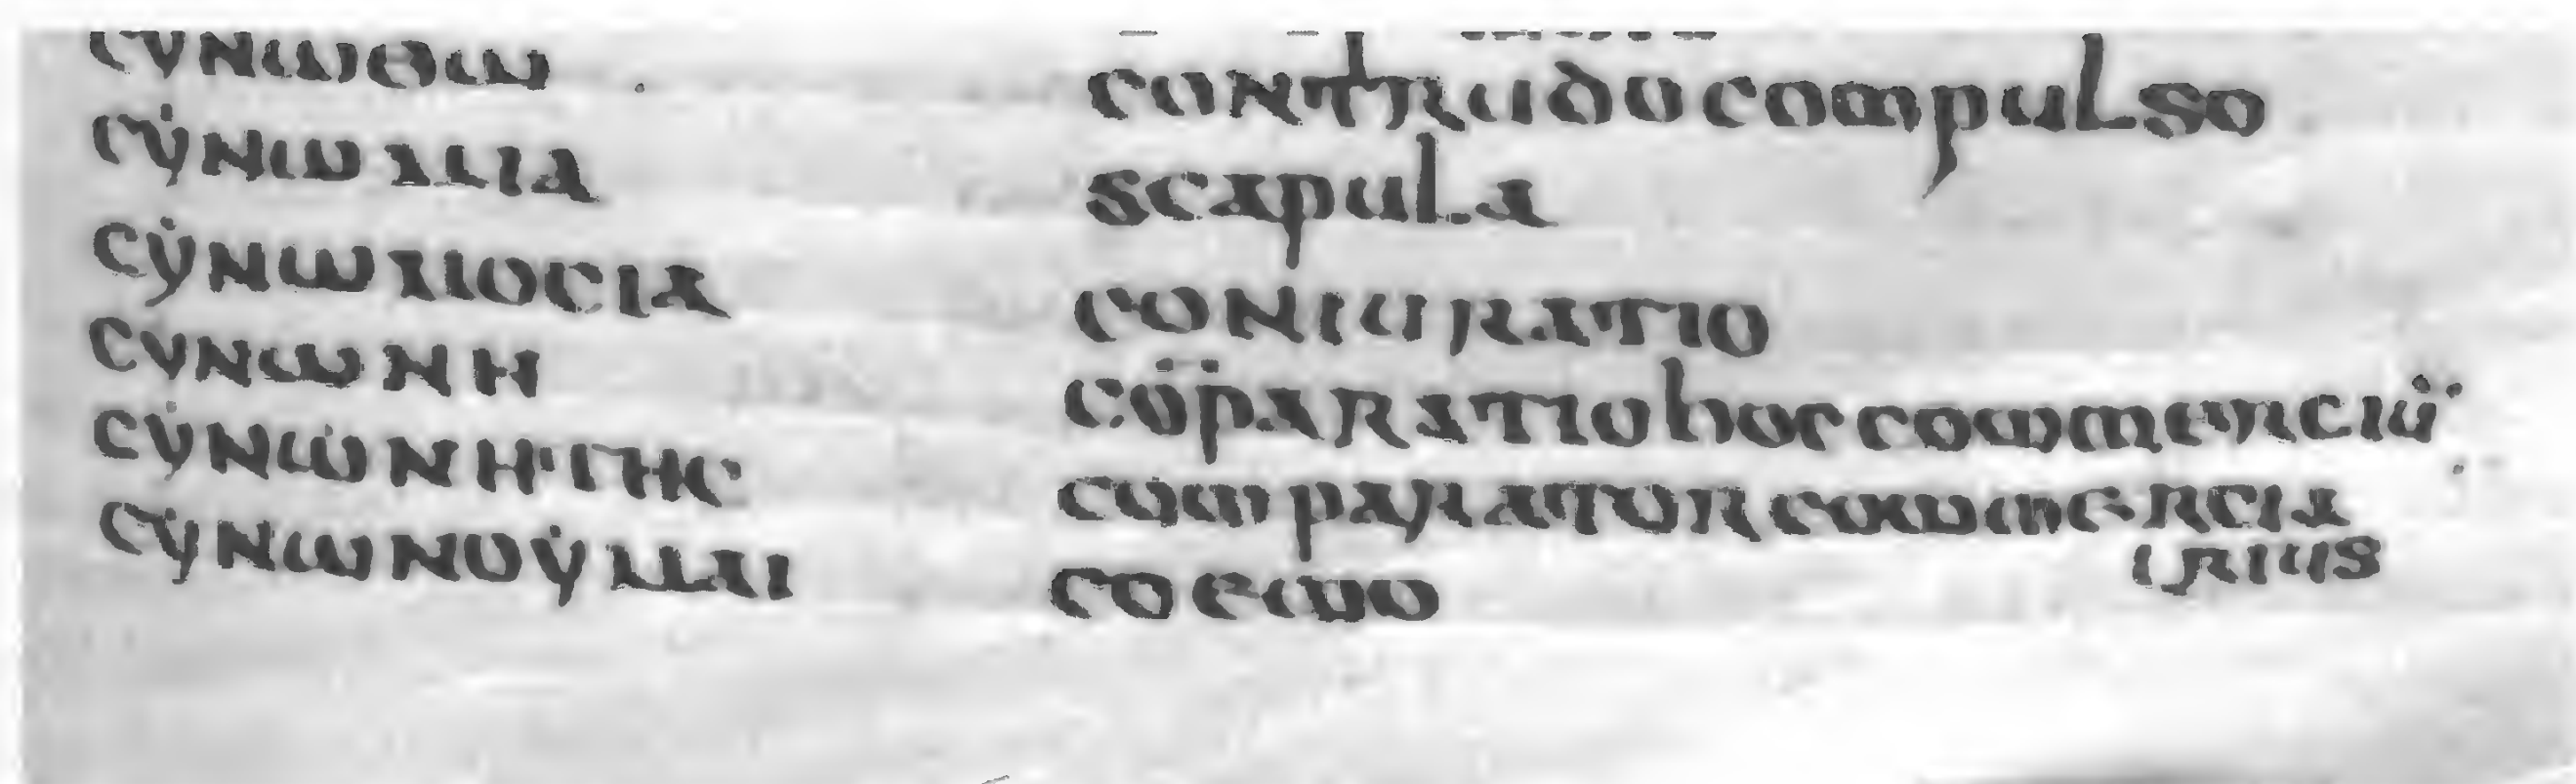 ϹΥΝωΘω contrudo compulso
ϹΥΝωΜΙΑ scapula
ϹΥΝωΜΟϹΙΑ coniuratio
ϹΥΝωΝΗ cōparatio hoc commerciū
ϹΥΝωΝΗΤΗϹ comparator commercia
rius
ϹΥΝωΝΟΥΜΑΙ coemo